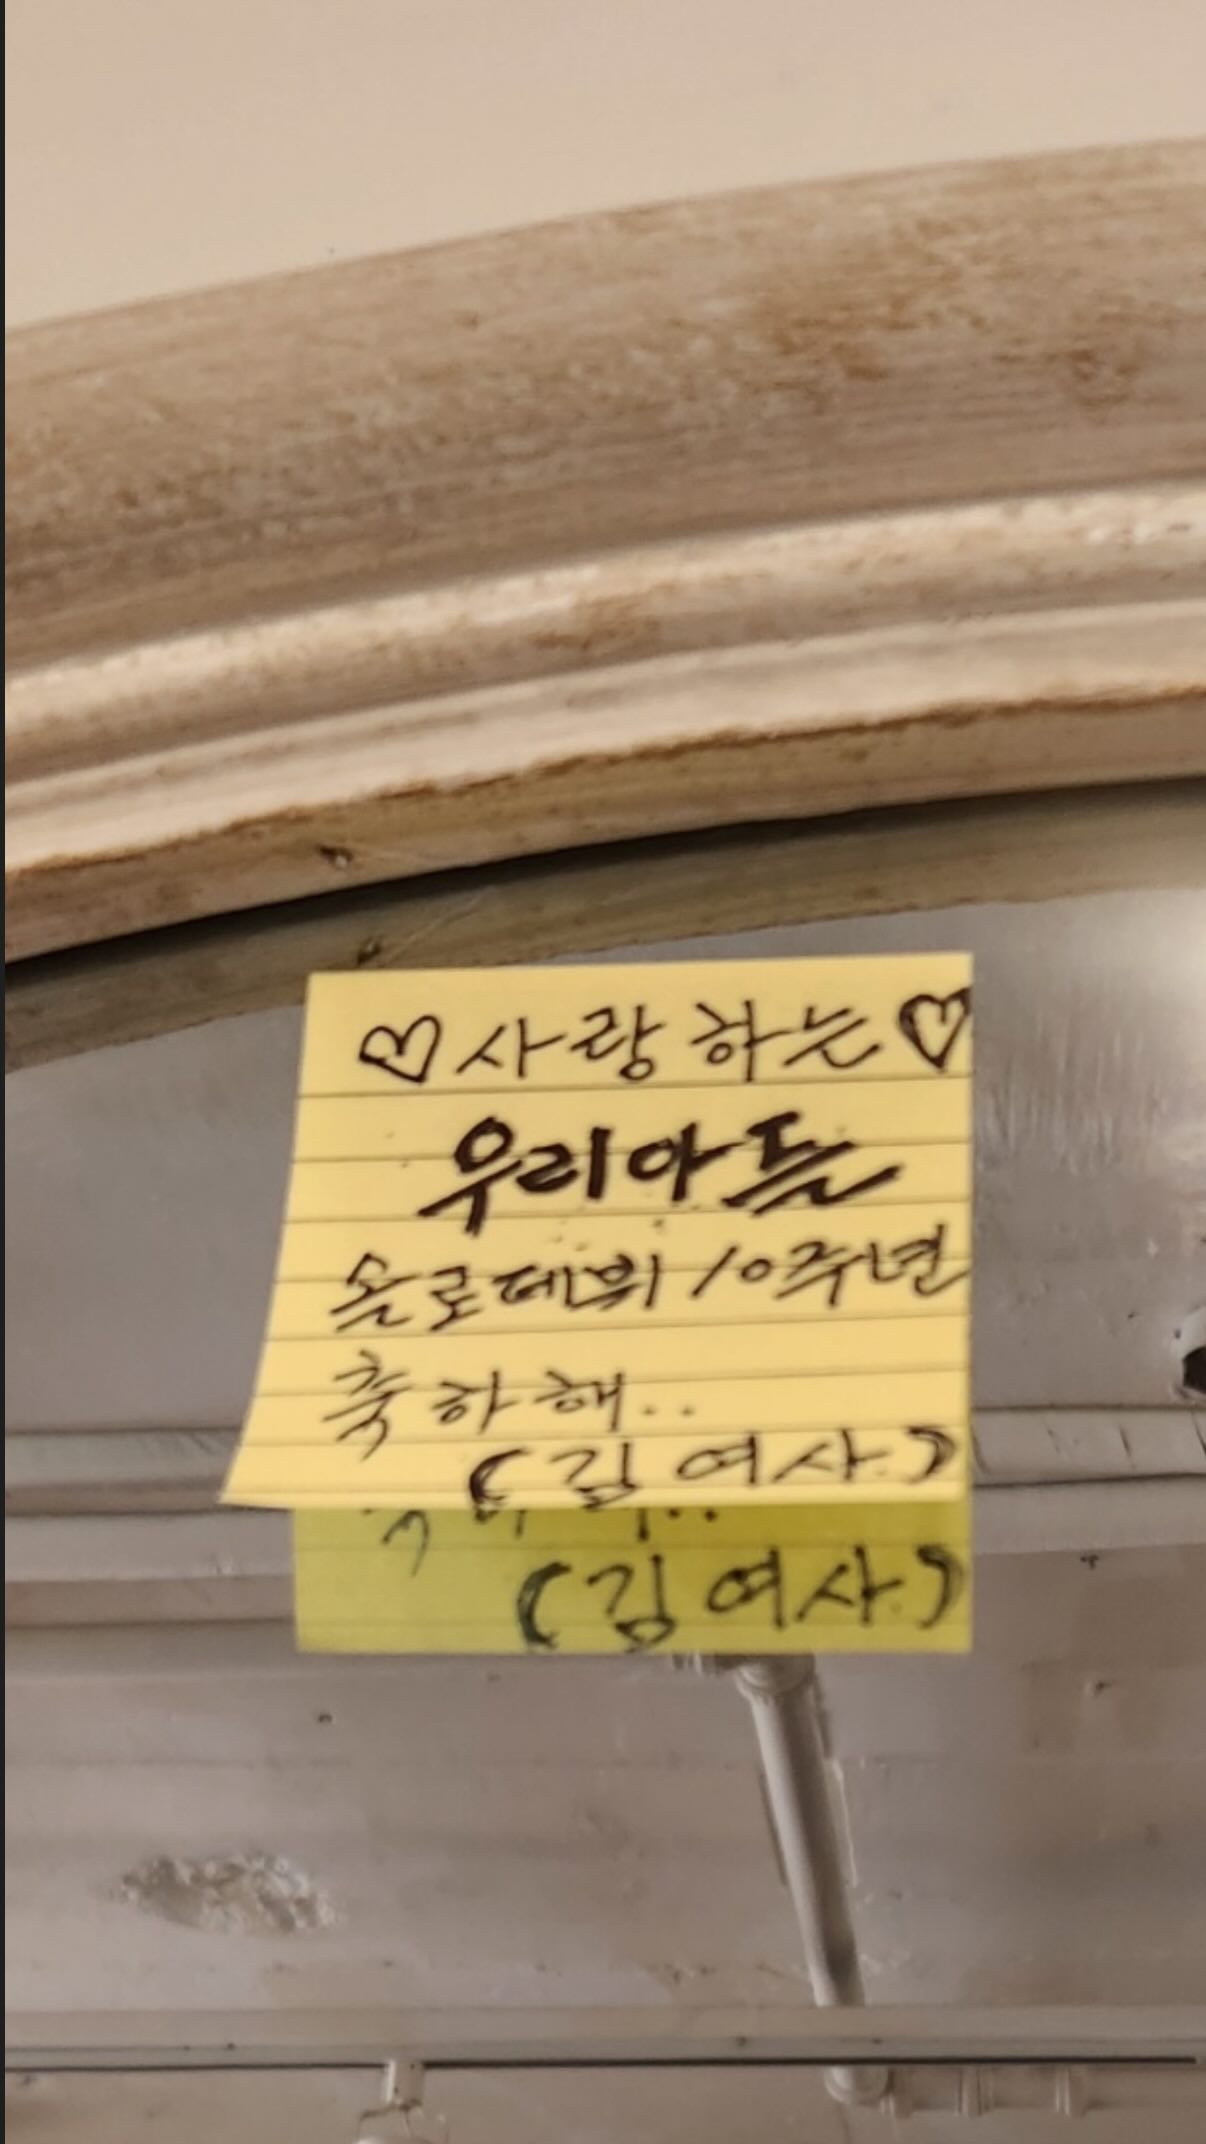 ♡사랑하는♡
우리아들
솔로데뷔 10주년
축하해..
(김여사)
(김여사)